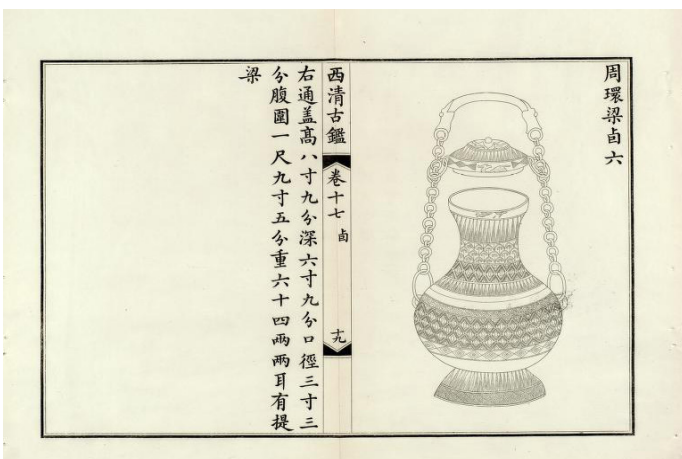 周環梁卣六
西清古鑑
卷十七 卣
十九
右通盖高八寸九分深六寸九分口徑三寸三
分腹圍一尺九寸五分重六十四兩兩耳有提
梁